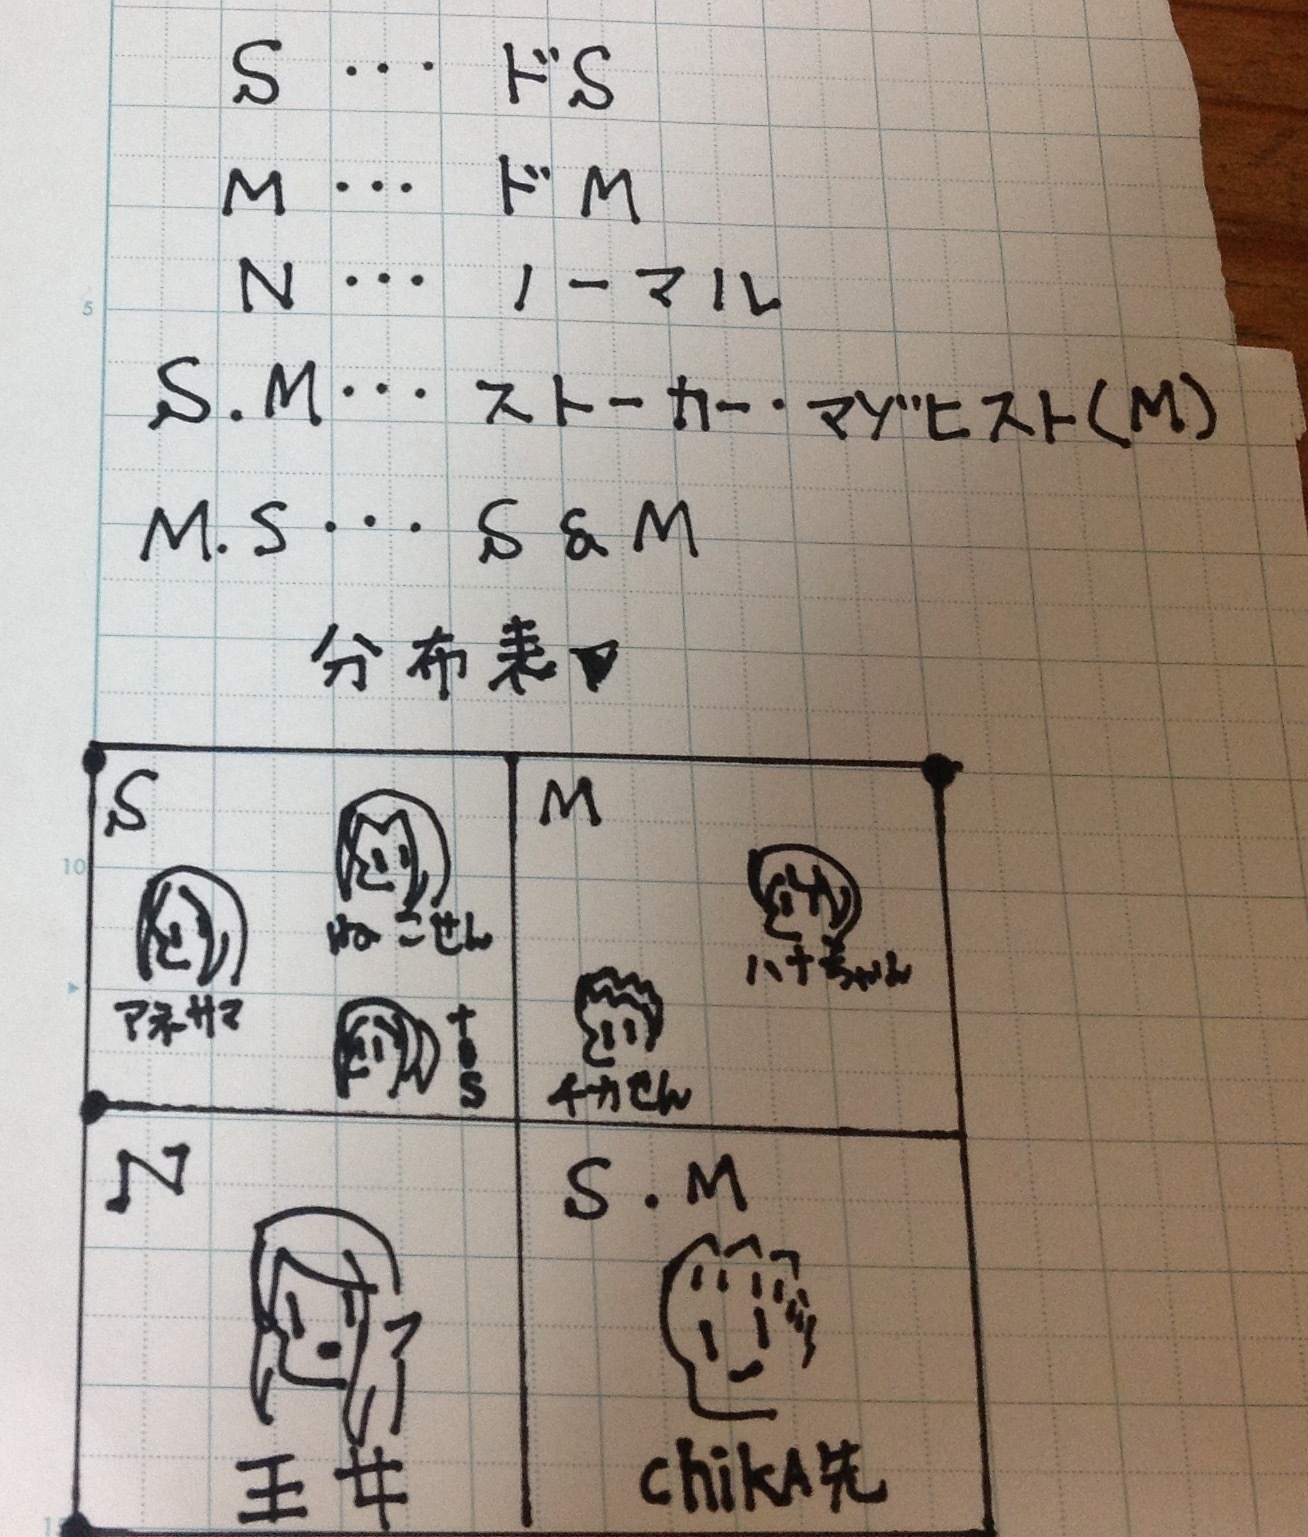 S ・・・ ドS
M ・・・ ドM
N ・・・ ノーマル
S.M・・・ ストーカー・マゾヒスト(M)
M.S・・・ S&M
分布表▼
S
ねこさん
アネサマ
M
ハナちゃん
チカさん
N
S.M
chikA先
5
10